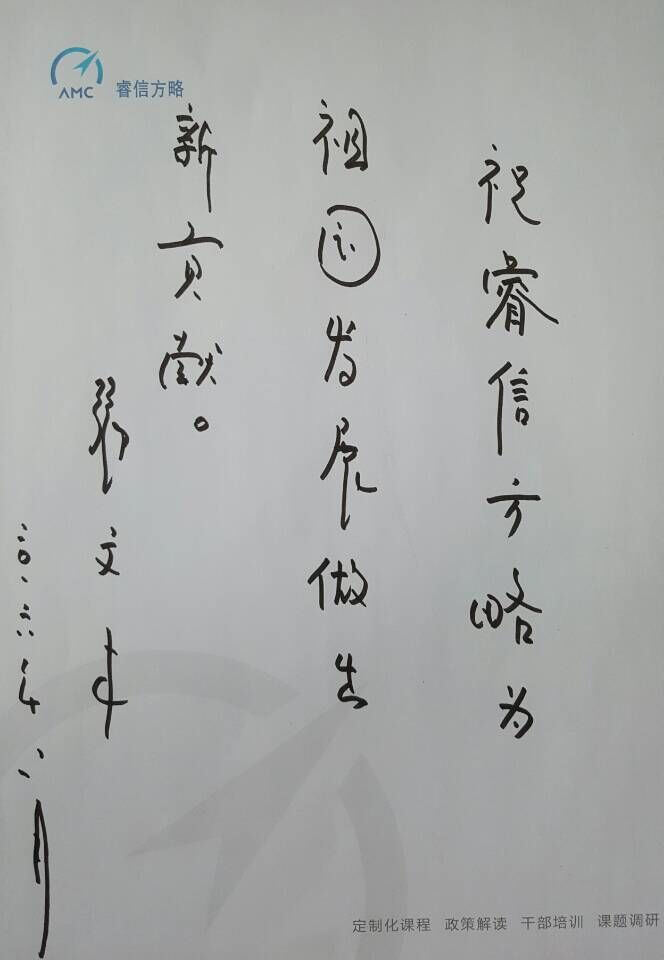 AMC 睿信方略
祝睿信方略为
祖国发展做出
新贡献。
文中
二〇一六年八月
定制化课程 政策解读 干部培训 课题调研